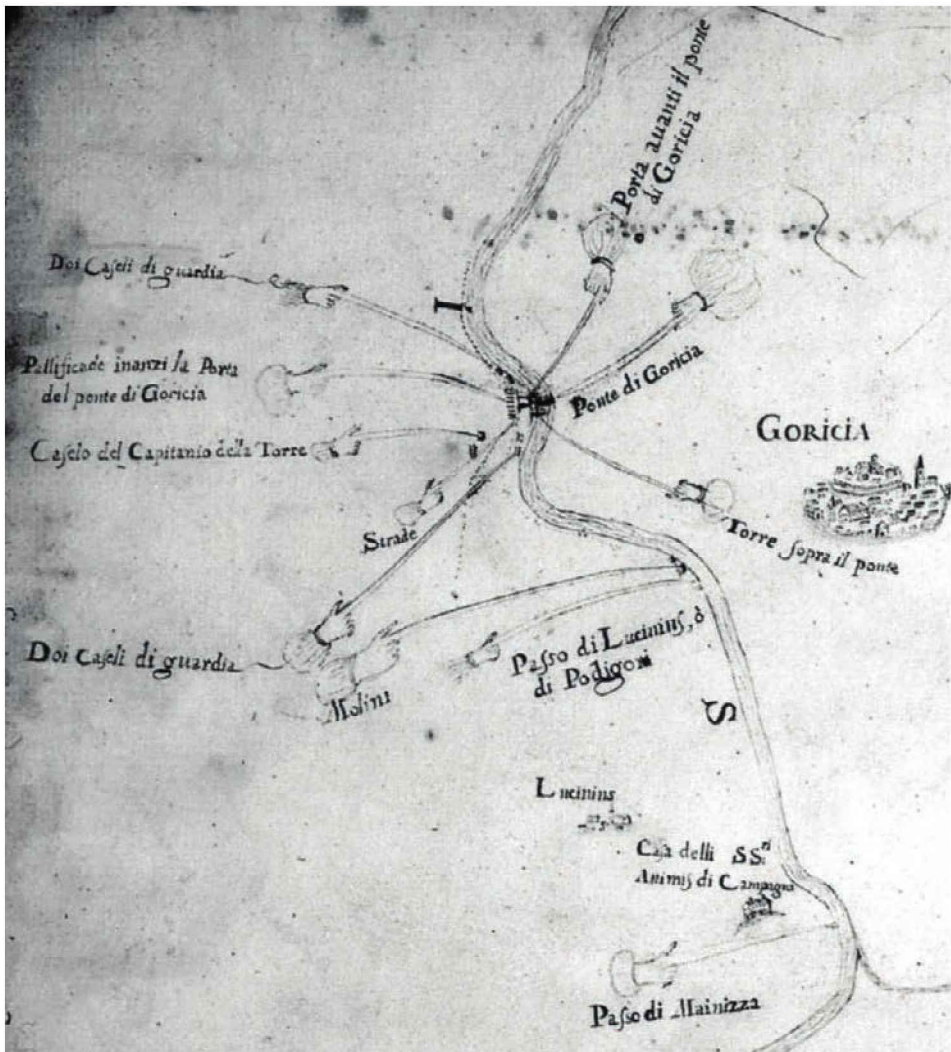 Porta auanti il ponte
di Goricia
Doi Caſeli di guardia
I
Pallificade inanzi la Porta
del ponte di Goricia
Ponte di Goricia
GORICIA
Caſelo del Capitanio della Torre
Strade
Torre ſopra il ponte
Doi Caſeli di guardia
Molini
Paſſo di Lucinins, ò
di Podigori
S
Lucinins
Caſa delli SS.ri
Animis di Campagna
Paſſo di Mainizza